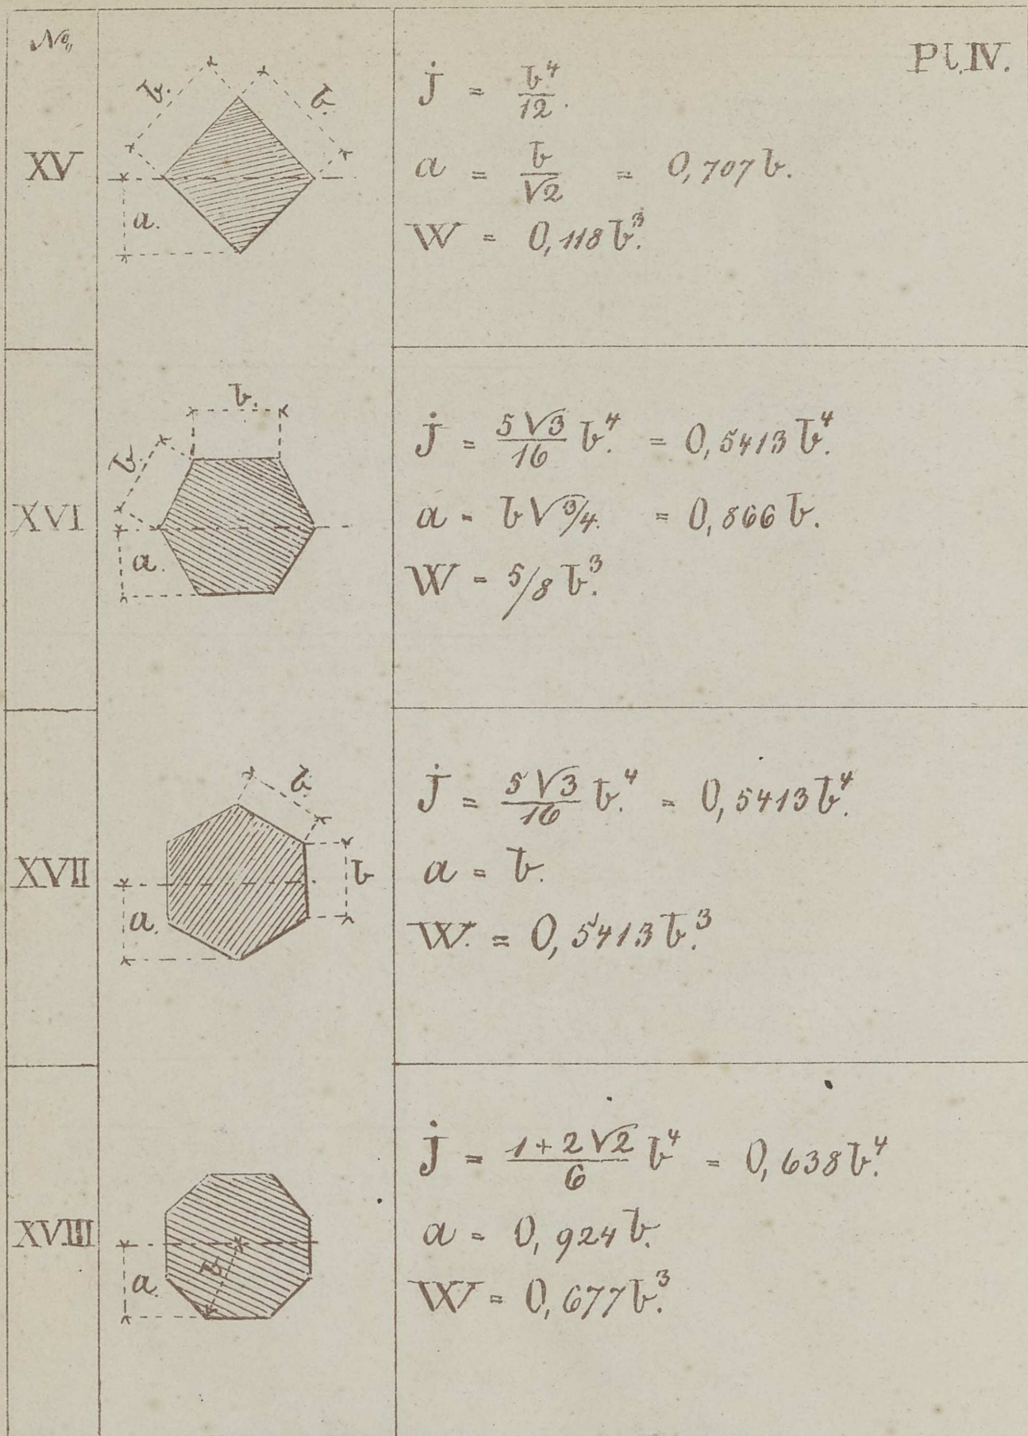 No.
Pl. IV.
XV
b. b.
a.
J = b⁴/12.
a = b/√2 = 0,707 b.
W = 0,118 b³.
XVI
b.
b.
a.
J = 5√3/16 b⁴. = 0,5413 b⁴.
a = b√3/4. = 0,866 b.
W = 5/8 b³.
XVII
b.
b
a.
J = 5√3/16 b⁴. = 0,5413 b⁴.
a = b.
W. = 0,5413 b³.
XVIII
b
a.
J = 1+2√2/6 b⁴ = 0,638 b⁴.
a = 0,924 b.
W = 0,677 b³.